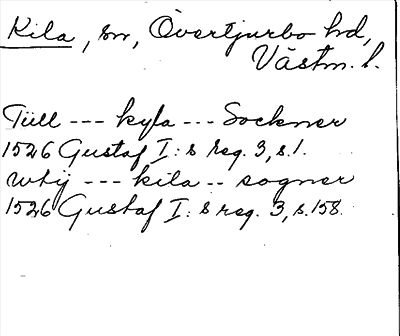 Kila, sn, Övertjurbo hd,
Västm. l.
Tüll --- kyla --- Sockner
1526 Gustaf I:s reg. 3, s. 1.
Wtij --- kila -- sogner
1526 Gustaf I:s reg. 3, s. 158.